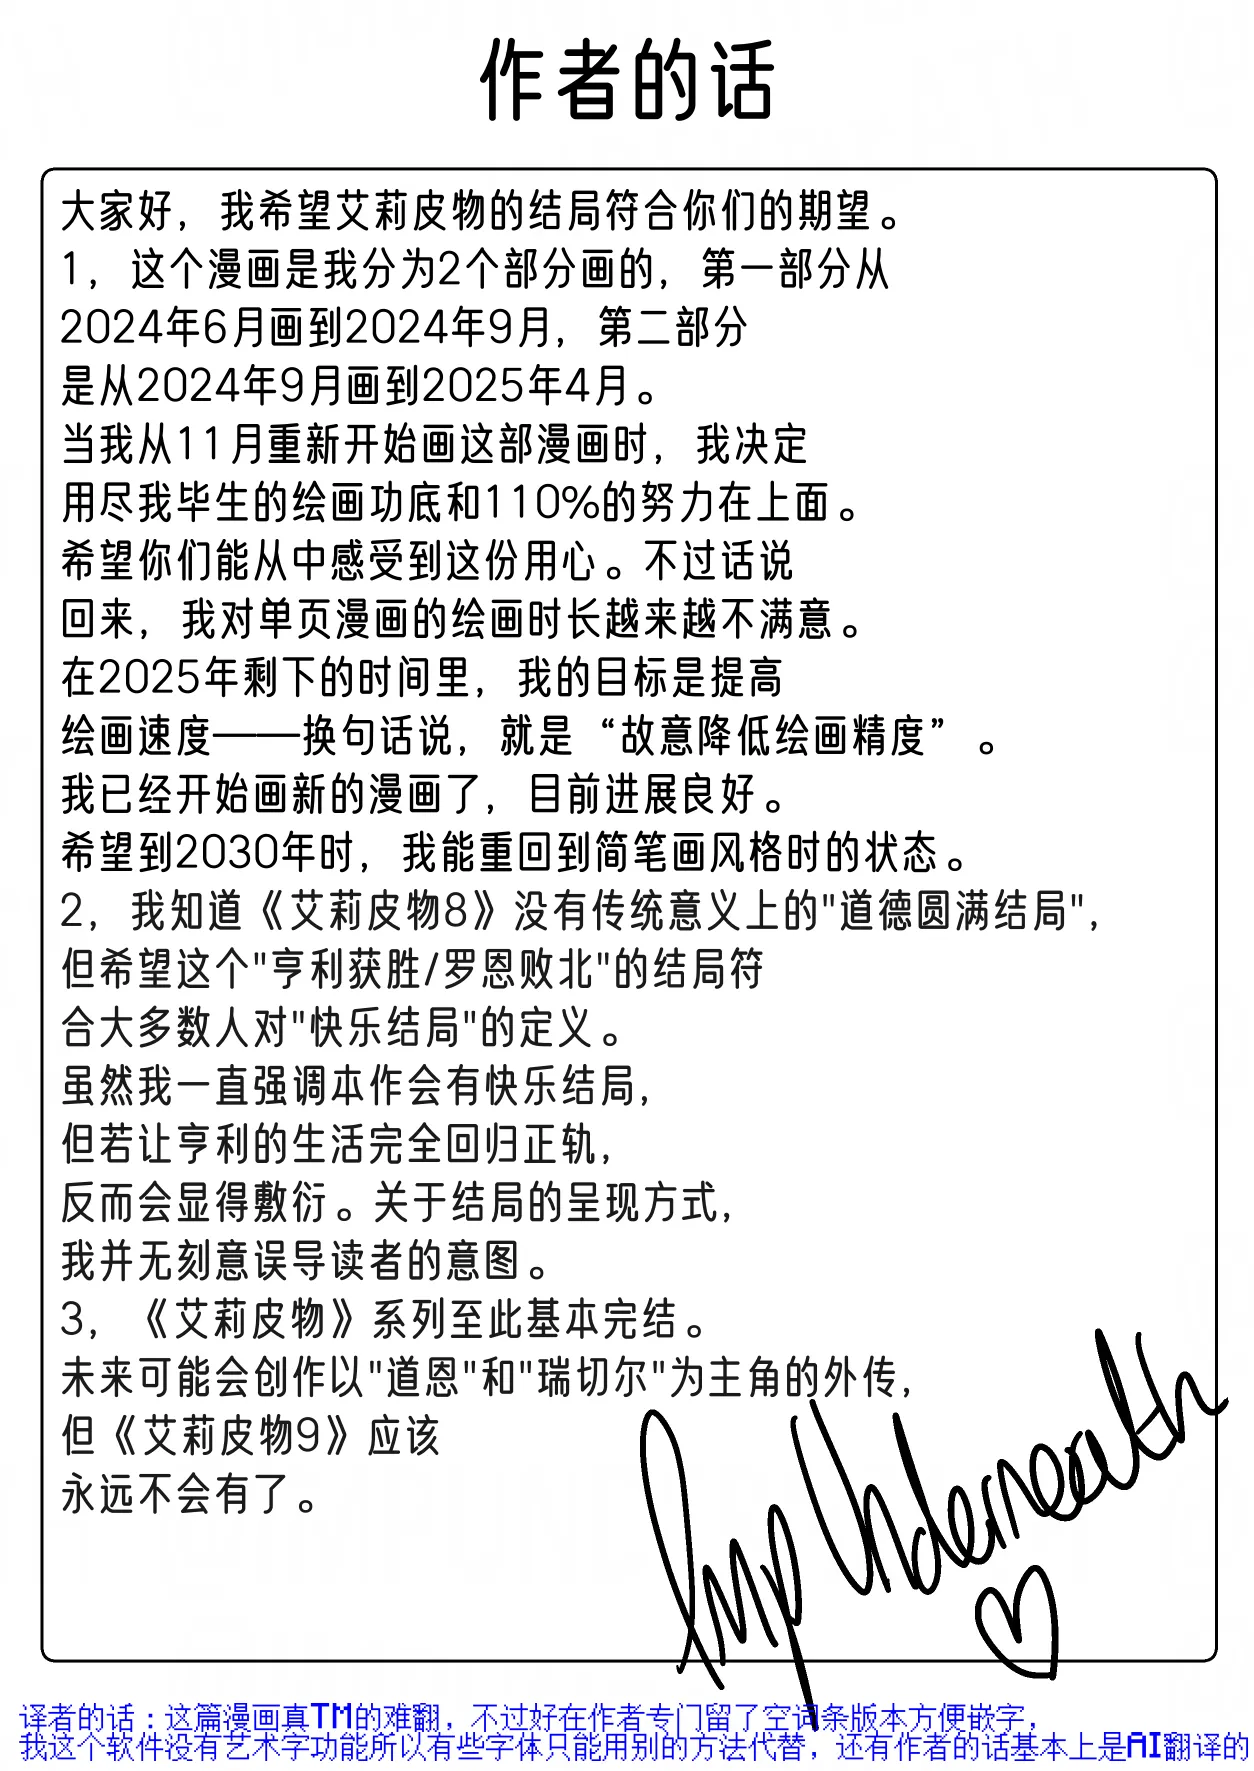 作者的话
大家好，我希望艾莉皮物的结局符合你们的期望。
1，这个漫画是我分为2个部分画的，第一部分从
2024年6月画到2024年9月，第二部分
是从2024年9月画到2025年4月。
当我从11月重新开始画这部漫画时，我决定
用尽我毕生的绘画功底和110%的努力在上面。
希望你们能从中感受到这份用心。不过话说
回来，我对单页漫画的绘画时长越来越不满意。
在2025年剩下的时间里，我的目标是提高
绘画速度——换句话说，就是“故意降低绘画精度”。
我已经开始画新的漫画了，目前进展良好。
希望到2030年时，我能重回到简笔画风格时的状态。
2，我知道《艾莉皮物8》没有传统意义上的"道德圆满结局"，
但希望这个"亨利获胜/罗恩败北"的结局符
合大多数人对"快乐结局"的定义。
虽然我一直强调本作会有快乐结局，
但若让亨利的生活完全回归正轨，
反而会显得敷衍。关于结局的呈现方式，
我并无刻意误导读者的意图。
3，《艾莉皮物》系列至此基本完结。
未来可能会创作以"道恩"和"瑞切尔"为主角的外传，
但《艾莉皮物9》应该
永远不会有了。
译者的话：这篇漫画真TM的难翻，不过好在作者专门留了空词条版本方便嵌字，
我这个软件没有艺术字功能所以有些字体只能用别的方法代替，还有作者的话基本上是AI翻译的